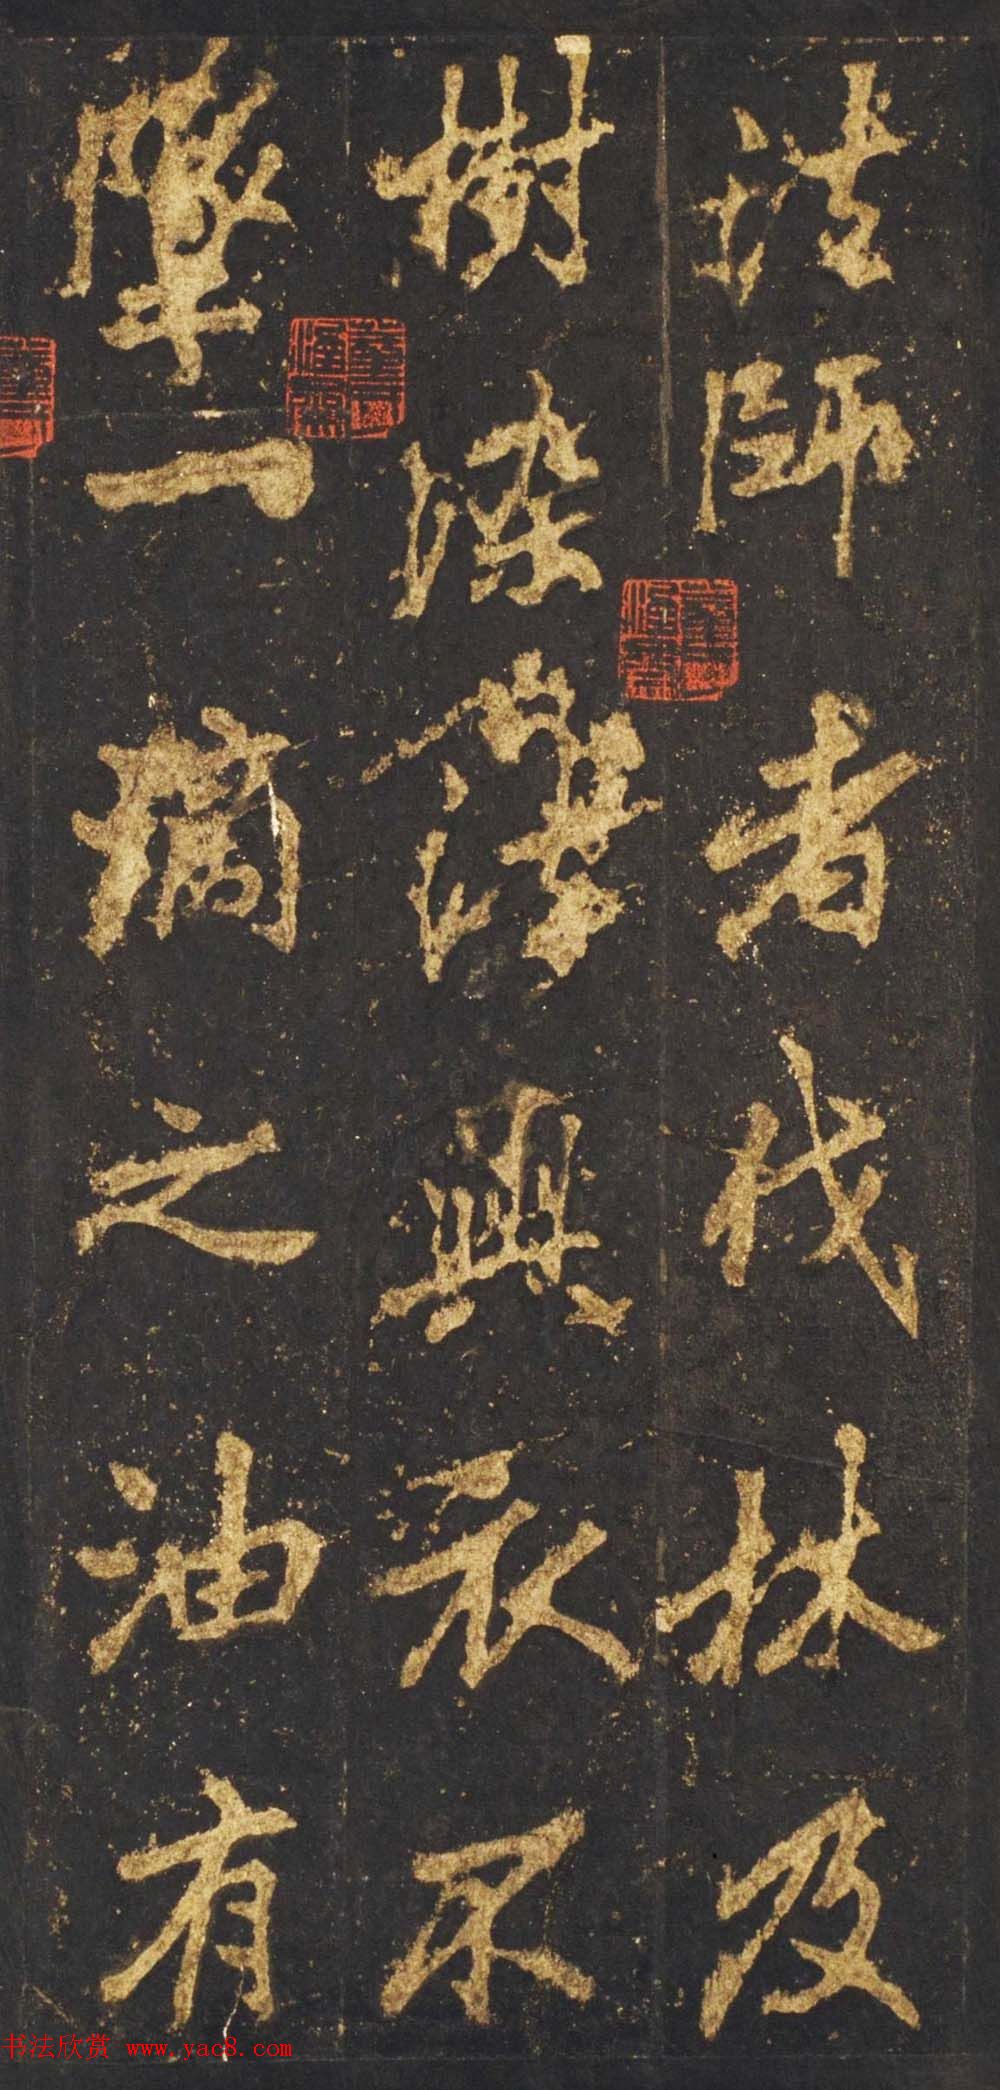 法師者伐林及
樹染薄與衣不
墜一滴之油有
书法欣赏 www.yac8.com